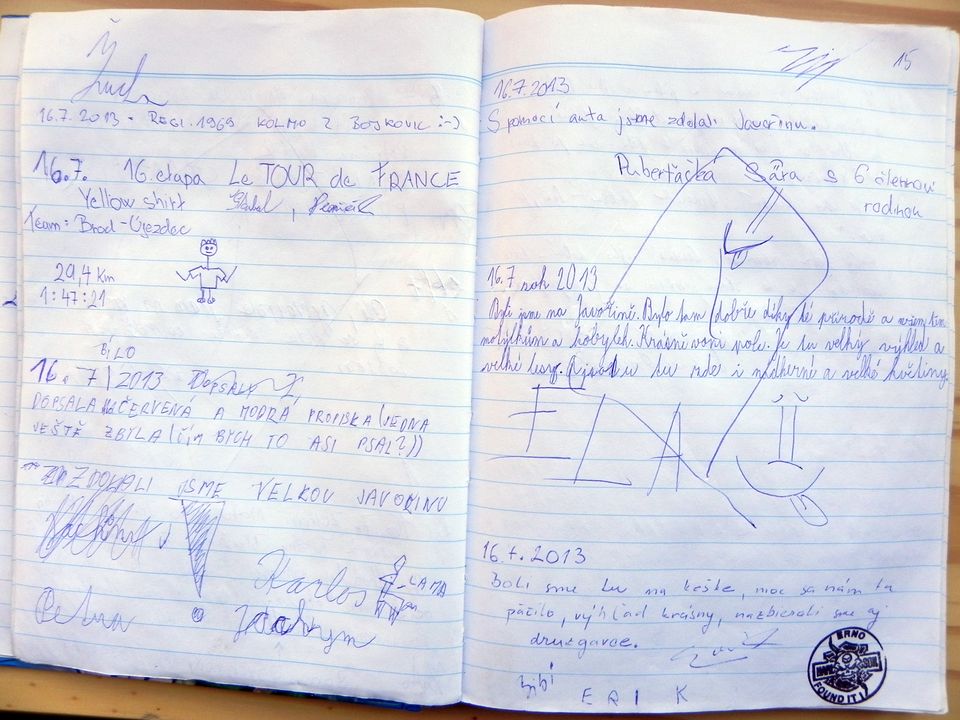 16.7.2013 - REGI.1969 KOLMO Z BOJKOVIC :-)
16.7. 16. etapa Le TOUR de FRANCE
Yellow shirt
Team: Brod - Újezdec
29,4 km
1:47:21
BÍLO
16.7/2013
DOPSALA ČERVENÁ A MODRÁ PROPISKA (JEDNA
JEŠTĚ ZBYLA (ČÍM BYCH TO ASI PSAL?))
ZDOLALI JSME VELKOU JAVOŘINU
Karlos LAMA
Petra Jáchym
15
16.7.2013
S pomocí auta jsme zdolali Javořinu.
Puberťačka Sára s 6 člennou
rodinou
16.7 rok 2013
Byli jsme na Javořině. Bylo tam dobře díky té přírodě a všem těm
motýlkům a kobylek. Krásně voní pole. Je tu velký výhled a
velké lesy. tu rde i nádherné a velké květiny.
ELA
16.7.2013
Boli sme tu na keške, moc sa nám tu
páčilo, výhľad krásny, nazbierali sme aj
druzgavce.
Bibi
ERIK
ERNO
FOUND IT!